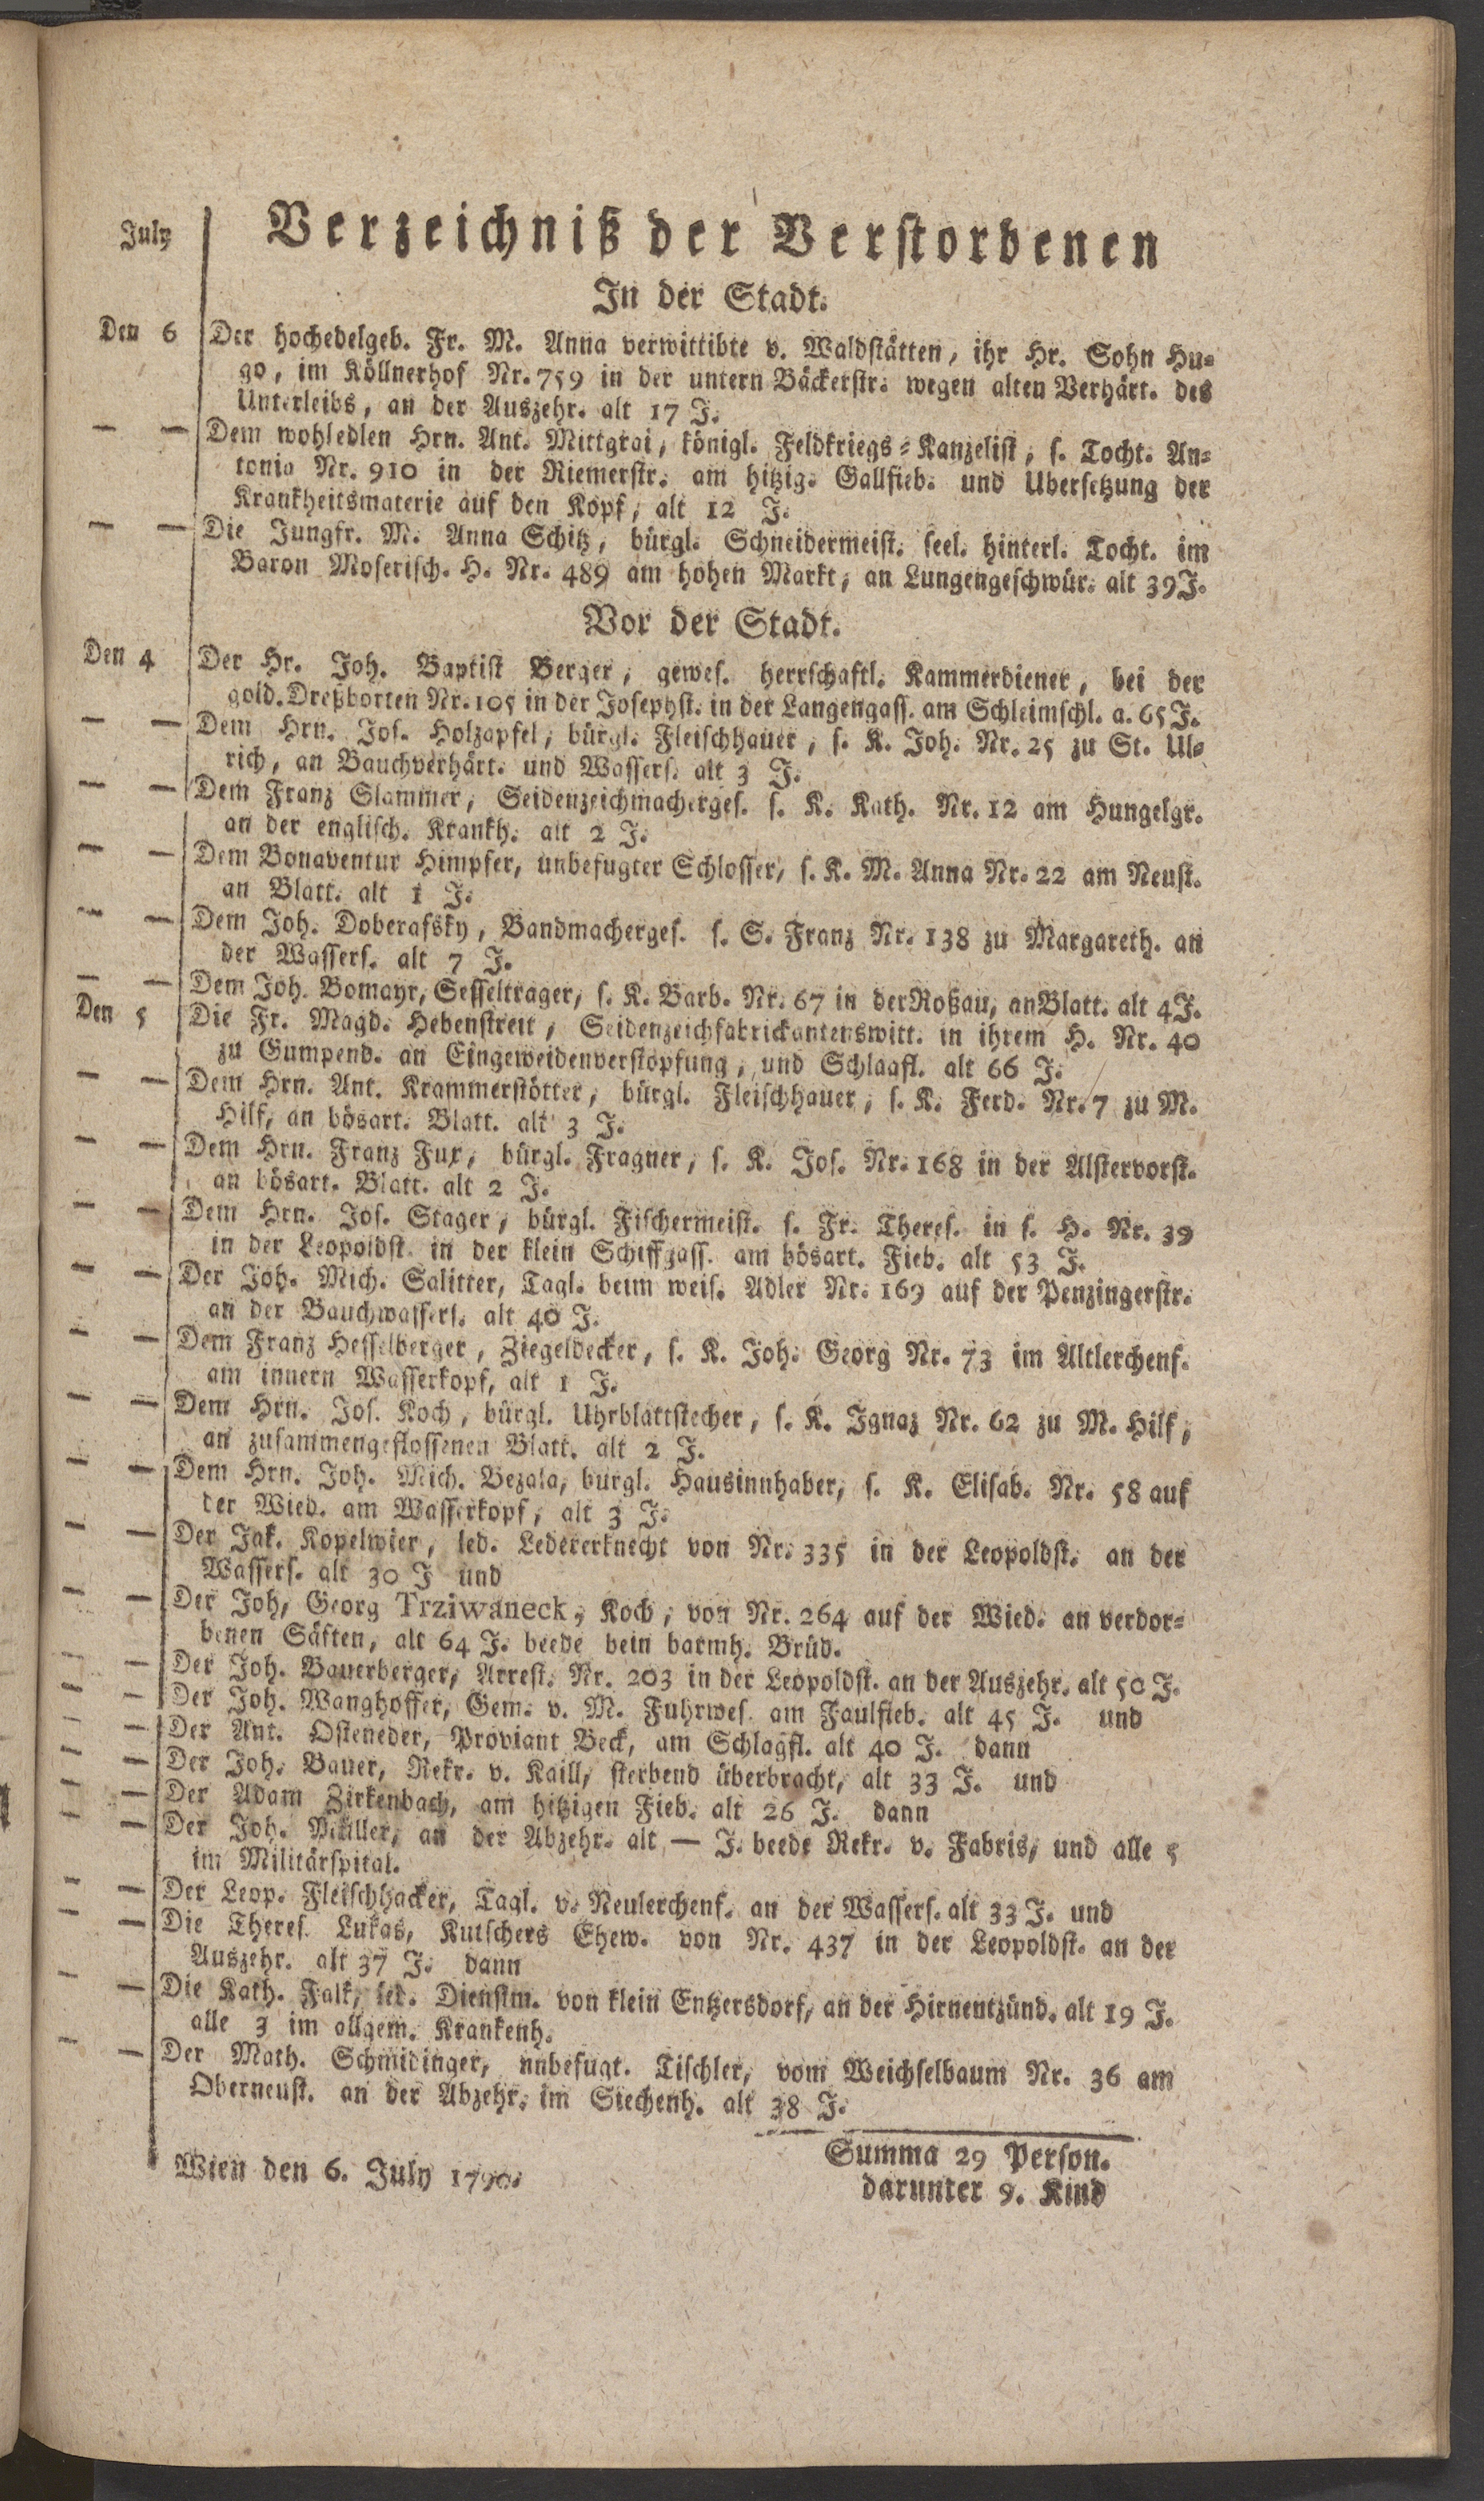 July
Verzeichniß der Verstorbenen
In der Stadt.
Den 6 Der hochedelgeb. Fr. M. Anna verwittibte v. Waldstätten, ihr Hr. Sohn Hu-
go, im Köllnerhof Nr. 759 in der untern Bäckerstr. wegen alten Verhärt. des
Unterleibs, an der Auszehr. alt 17 J.
— — Dem wohledlen Hrn. Ant. Mittgrai, königl. Feldkriegs-Kanzelist, s. Tocht. An-
tonia Nr. 910 in der Riemerstr. am hitzig. Gallfieb. und Ubersetzung der
Krankheitsmaterie auf den Kopf, alt 12 J.
— — Die Jungfr. M. Anna Schitz, bürgl. Schneidermeist. seel. hinterl. Tocht. im
Baron Moserisch. H. Nr. 489 am hohen Markt, an Lungengeschwür. alt 39 J.
Vor der Stadt.
Den 4 Der Hr. Joh. Baptist Berger, gewes. herrschaftl. Kammerdiener, bei der
gold. Dreßborten Nr. 105 in der Josephst. in der Langengass. am Schleimschl. a. 65 J.
— — Dem Hrn. Jos. Holzapfel, bürgl. Fleischhauer, s. K. Joh. Nr. 25 zu St. Ul-
rich, an Bauchverhärt. und Wassers. alt 3 J.
— — Dem Franz Slammer, Seidenzeichmacherges. s. K. Kath. Nr. 12 am Hungelgr.
an der englisch. Krankh. alt 2 J.
— — Dem Bonaventur Himpfer, unbefugter Schlosser, s. K. M. Anna Nr. 22 am Neust.
an Blatt. alt 1 J.
— — Dem Joh. Doberafsky, Bandmacherges. s. S. Franz Nr. 138 zu Margareth. an
der Wassers. alt 7 J.
— — Dem Joh. Bomayr, Sesseltrager, s. K. Barb. Nr. 67 in der Roßau, an Blatt. alt 4 J.
Den 5 Die Fr. Magd. Hebenstreit, Seidenzeichfabrickantenswitt. in ihrem H. Nr. 40
zu Gumpend. an Eingeweidenverstopfung, und Schlagfl. alt 66 J.
— — Dem Hrn. Ant. Krammerstötter, bürgl. Fleischhauer, s. K. Ferd. Nr. 7 zu M.
Hilf, an bösart. Blatt. alt 3 J.
— — Dem Hrn. Franz Fux, bürgl. Fragner, s. K. Jos. Nr. 168 in der Alstervorst.
an bösart. Blatt. alt 2 J.
— — Dem Hrn. Jos. Stager, bürgl. Fischermeist. s. Fr. Theres. in s. H. Nr. 39
in der Leopoldst. in der klein Schiffgass. am bösart. Fieb. alt 53 J.
— — Der Joh. Mich. Salitter, Tagl. beim weis. Adler Nr. 169 auf der Penzingerstr.
an der Bauchwassers. alt 40 J.
— — Dem Franz Hesselberger, Ziegeldecker, s. K. Joh. Georg Nr. 73 im Altlerchenf.
am innern Wasserkopf, alt 1 J.
— — Dem Hrn. Jos. Koch, bürgl. Uhrblattstecher, s. K. Ignaz Nr. 62 zu M. Hilf,
an zusammengeflossenen Blatt. alt 2 J.
— — Dem Hrn. Joh. Mich. Bezala, bürgl. Hausinnhaber, s. K. Elisab. Nr. 58 auf
der Wied. am Wasserkopf, alt 3 J.
— — Der Jak. Kopelwier, led. Ledererknecht von Nr. 335 in der Leopoldst. an der
Wassers. alt 30 J und
— — Der Joh, Georg Trziwaneck, Koch, von Nr. 264 auf der Wied. an verdor-
benen Säften, alt 64 J. beede bein barmh. Brüd.
— — Der Joh. Bauerberger, Arrest. Nr. 203 in der Leopoldst. an der Auszehr. alt 50 J.
— — Der Joh. Wanghoffer, Gem. v. M. Fuhrwes. am Faulfieb. alt 45 J. und
— — Der Ant. Osteneder, Proviant Beck, am Schlagfl. alt 40 J. dann
— — Der Joh. Bauer, Rekr. v. Kaill, sterbend überbracht, alt 33 J. und
— — Der Adam Zirkenbach, am hitzigen Fieb. alt 26 J. dann
— — Der Joh. Müller, an der Abzehr. alt — J. beede Rekr. v. Fabris, und alle 5
im Militärspital.
— — Der Leop. Fleischhacker, Tagl. v. Neulerchenf. an der Wassers. alt 33 J. und
— — Die Theres. Lukas, Kutschers Ehew. von Nr. 437 in der Leopoldst. an der
Auszehr. alt 37 J. dann
— — Die Kath. Falk, led. Dienstm. von klein Entzersdorf, an der Hirnentzünd. alt 19 J.
alle 3 im allgem. Krankenh.
— — Der Math. Schmidinger, unbefugt. Tischler, vom Weichselbaum Nr. 36 am
Oberneust. an der Abzehr. im Siechenh. alt 38 J.
Summa 29 Person.
Wien den 6. July 1790.
darunter 9. Kind